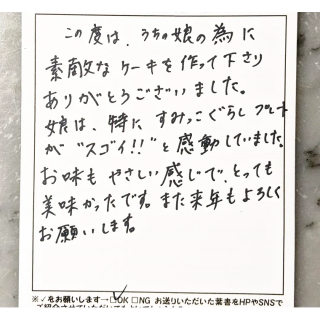 この度は、うちの娘の為に
素敵なケーキを作って下さり
ありがとうございました。
娘は、特にすみっこぐらしプレート
が"スゴイ!!"と感動していました。
お味もやさしい感じで、とっても
美味かったです。また来年もよろしく
お願いします。
※✓をお願いします→□OK □NG お送りいただいた葉書をHPやSNSで